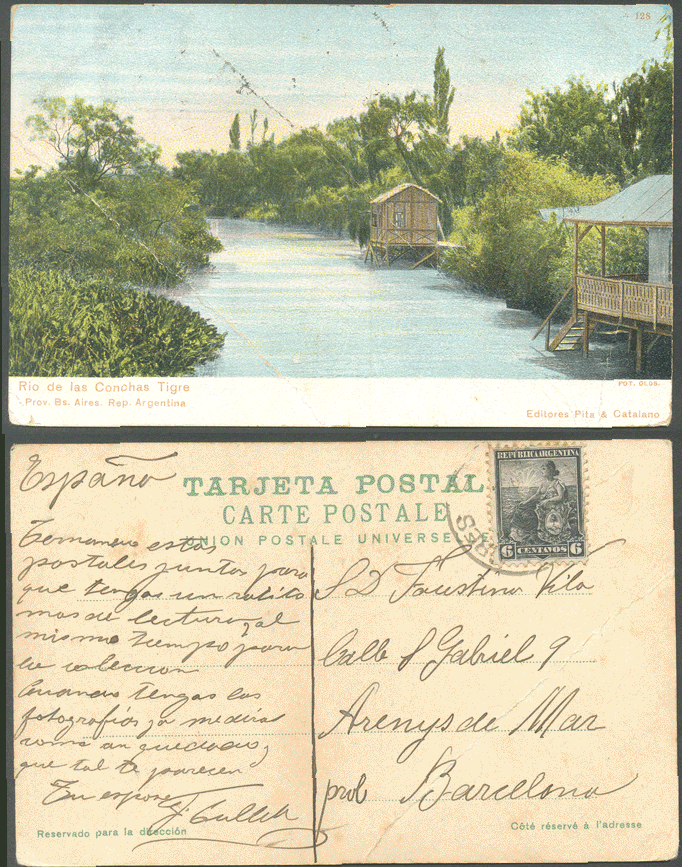 128
Rio de las Conchas Tigre
Prov. Bs. Aires. Rep. Argentina
POT. OLDS.
Editores Pita & Catalano
Español
TARJETA POSTAL
CARTE POSTALE
UNION POSTALE UNIVERSE E
REPUBLICA ARGENTINA
6 CENTAVOS 6
estas
postales juntas para
que tengas un ratito
mas de lectura, al
mismo tiempo para
la coleccion
Cuando tengas las
fotografías ya me dirás
como an quedado, y
que tal te parecen
Tu esposo
S D Faustino Vila
Calle S Gabriel 9
Arenys de Mar
prob Barcelona
Reservado para la dirección
Côté réservé à l'adresse